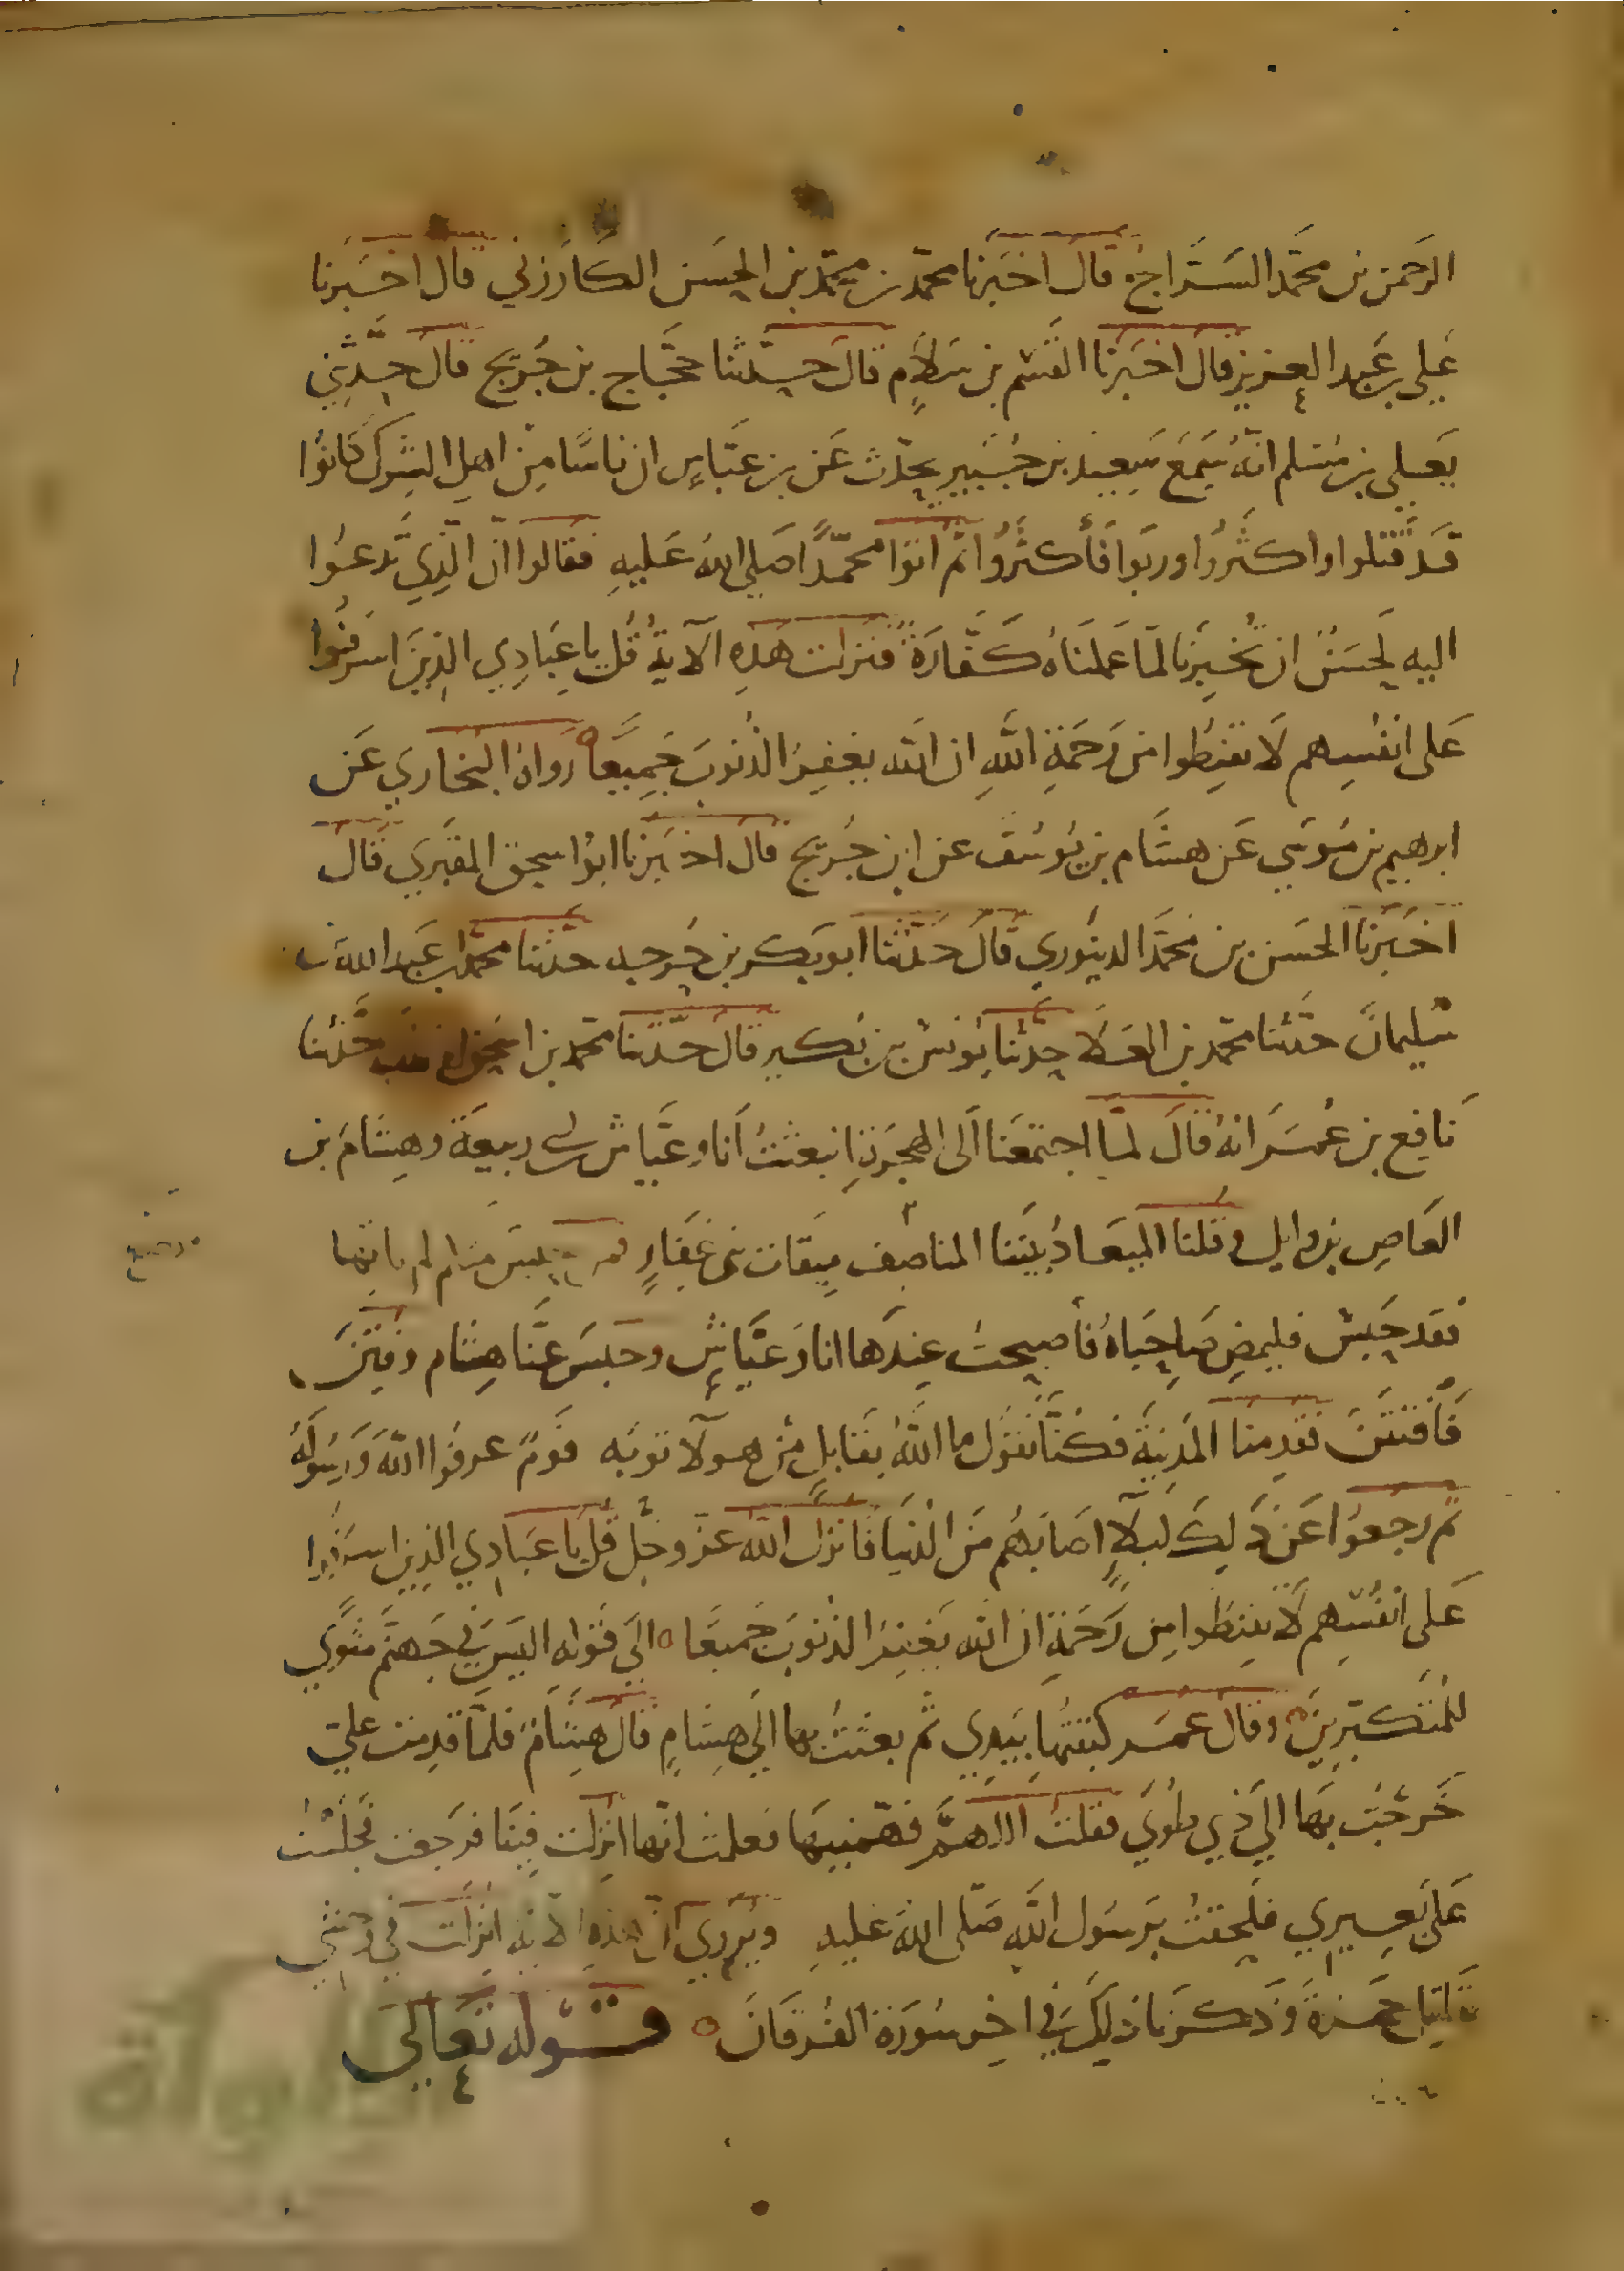 الرحمن بن محمد السراج قال اخبرنا محمد بن محمد بن الحسن الكارزلي قال اخبرنا
علي بن عبد العزيز قال اخبرنا القسم بن سلام قال حدثنا حجاج بن جريج قال حدثني
يعلي بن مسلم انه سمع سعيد بن جبير يحدث عن بن عباس ان ناسا من اهل الشرك كانوا
قد قتلوا واكثروا وزنوا فأكثروا ثم اتوا محمدا صلي الله عليه فقالوا ان الذي تدعوا
اليه لحسن ان تخبرنا لما عملناه كفارة فنزلت هذه الآية قل ياعبادي الذين اسرفوا
على انفسهم لا تقنطوا من رحمة الله ان الله يغفر الذنوب جميعا رواه البخاري عن
ابرهيم بن موسي عن هشام بن يوسف عن ابن جريج قال اخبرنا ابوا سحق المقبري قال
اخبرنا الحسن بن محمد الدينوري قال حدثنا ابو بكر بن خرجه حدثنا محمد بن عبد الله بن
سليمان حدثنا محمد بن العلا حدثنا يونس بن بكير قال حدثنا محمد بن اسحق حدثنا
نافع بن عمر انه قال لما اجتمعنا الى الهجرة انبعثت انا وعياش بن ابي ربيعة وهشام بن
العاص بن وايل وقلنا الميعاد بيننا المناصف ميقات بني غفار فمن لم ياتها
فقد حبس فليمض صاحباه فأصبحت عندها انا وعياش وحبس عنا هشام وفتن
فأفتتن فقدمنا المدينة فكنا نقول ما الله بقابل من هولآ توبه قوم عرفوا الله ورسوله
ثم رجعوا عن ذلك لبلآ اصابهم من الدنيا فانزل الله عز وجل قل يا عبادي الذين اسرفوا
على انفسهم لا تقنطوا من رحمة ان الله يغفر الذنوب جميعا الي قوله اليس في جهنم مثوي
للمتكبرين وقال عمر كتبتها بيدي ثم بعثت بها الي هشام قال هشام فلما قدمت علي
خرجت بها الي ذي طوي فقلت اللهم فهمنيها فعلمت انها انزلت فينا فرجعت فجلست
على بعيري فلحقت برسول الله صلى الله عليه ويروي ان هذه الاية انزلت في وحشي
قاتل حمزة وذكرنا ذلك في اخر سورة الفرقان قوله تعالى